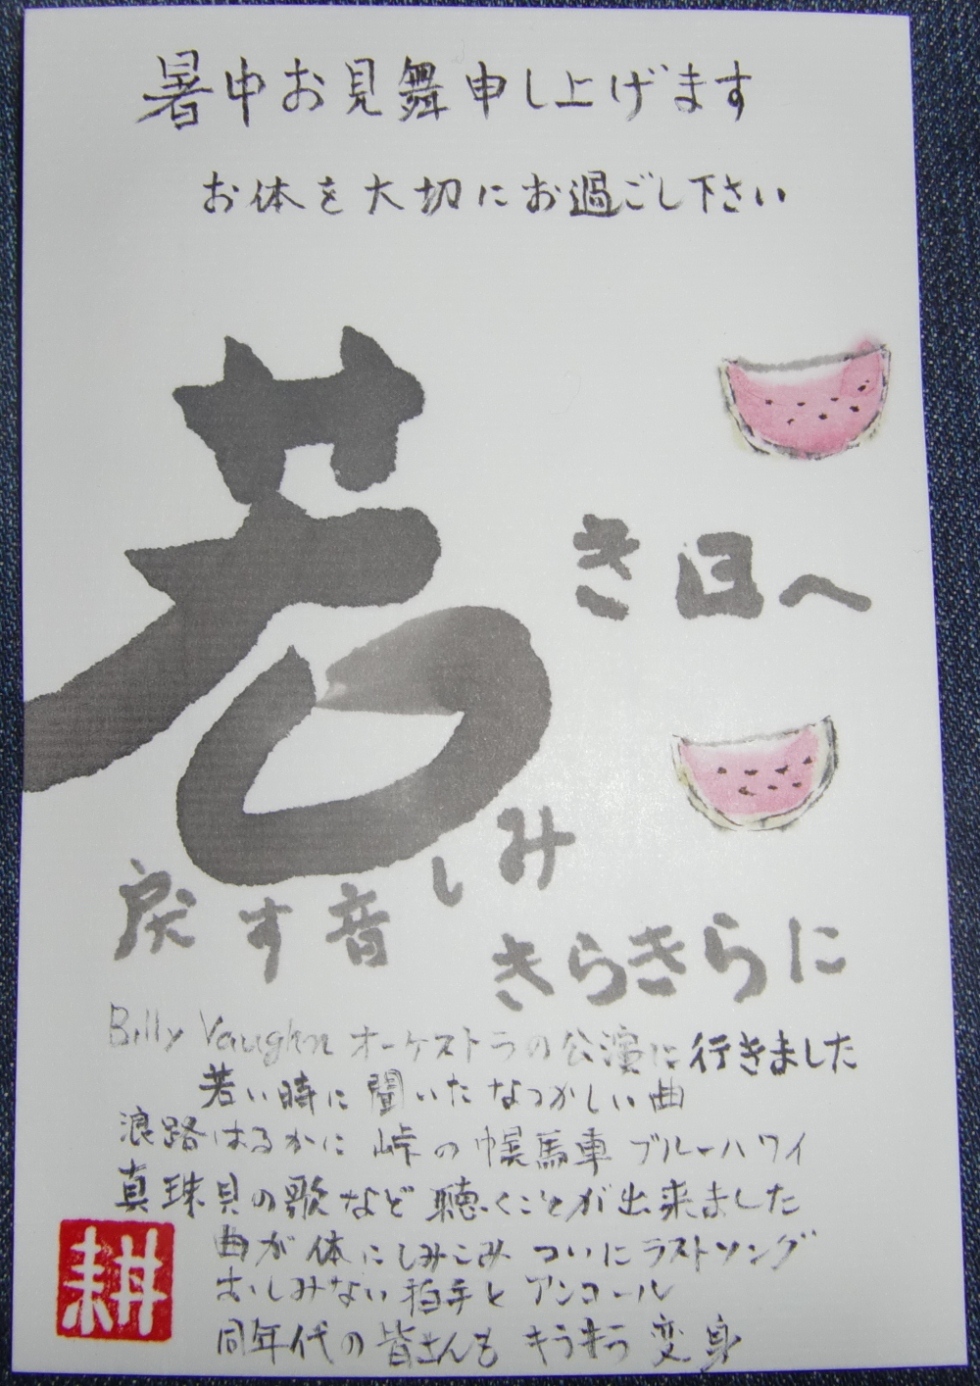 暑中お見舞申し上げます
お体を大切にお過ごし下さい
若き日へ
戻す音しみ
きらきらに
Billy Vaughn オーケストラの公演に行きました
若い時に聞いたなつかしい曲
浪路はるかに 峠の幌馬車 ブルーハワイ
真珠貝の歌など聴くことが出来ました
曲が体にしみこみ ついにラストソング
おしみない拍手とアンコール
同年代の皆さんも キラキラ 変身
耕